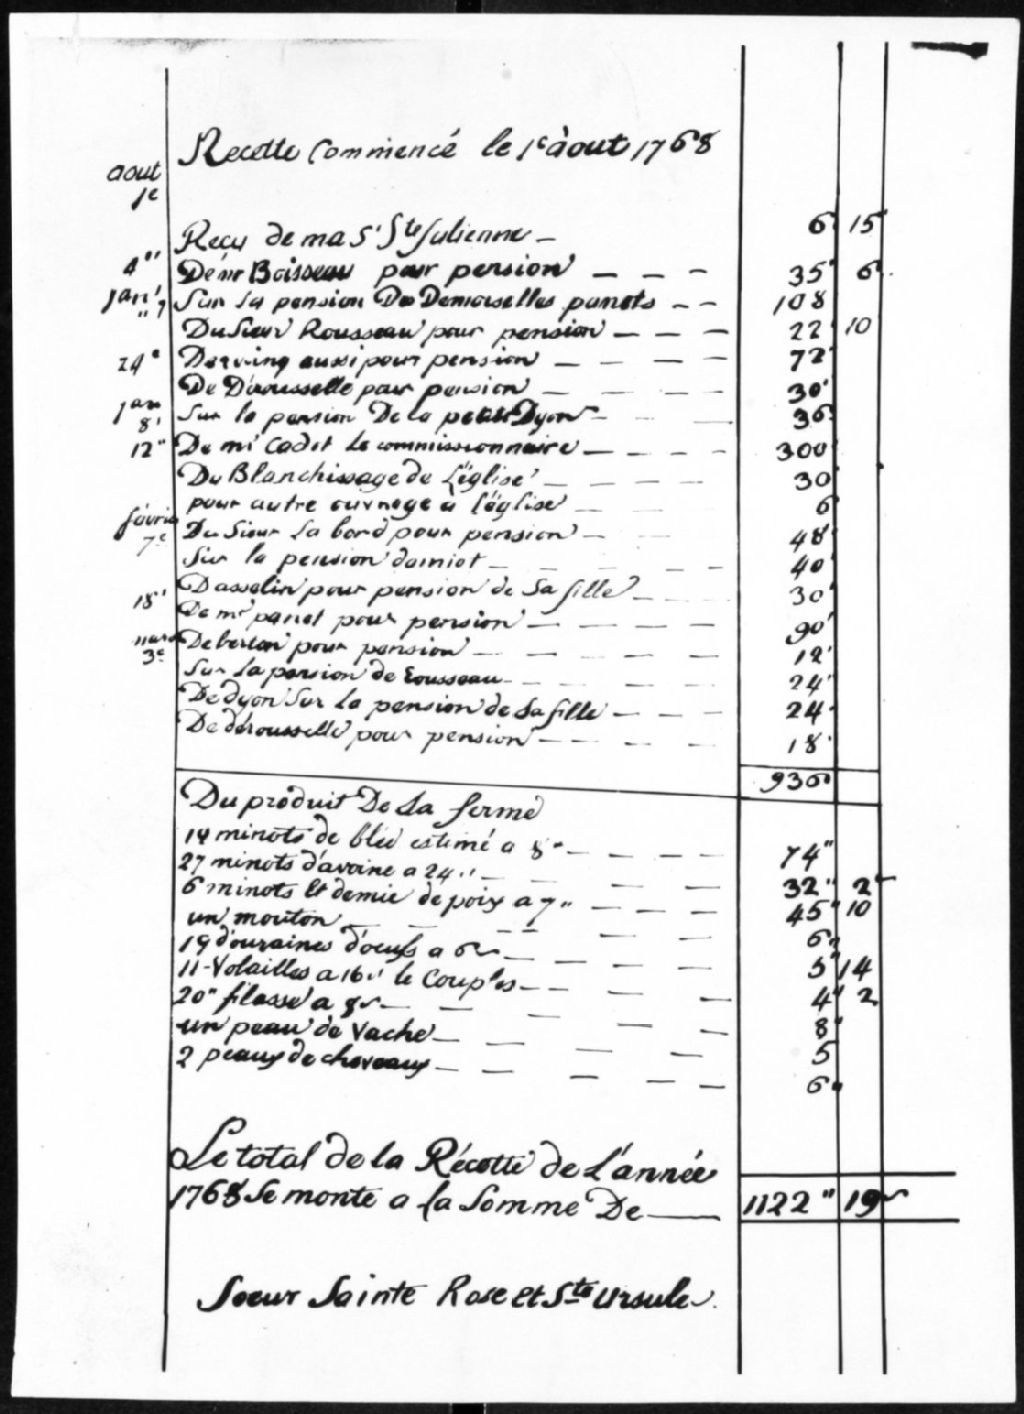 Recette Commencé le 1e àout 1768
aout
1e
Recu de ma Sr Ste Julienne 6 15
4" De mr Boisseau pour pension 35 6
Sur la pension Des Demoiselles panets 108
Du Sieur Rousseau pour pension 22 10
24e aussi pour pension 72
De Derousselle pour pension 30
jan 8' Sur la pension De la petite Dyon 36
12" De mr Cadet Le commissionnaire 300
Du Blanchissage de L'église 30
pour autre ouvrage à l'église 6
févrie 7e Du Sieur La bord pour pension 48
Sur la pension damiot 40
18" Dasselin pour pension de Sa fille 30
De mr panet pour pension 90
mars 3e De berlan pour pension 12
Sur La pension de Rousseau 24
De dyon Sur la pension de Sa fille 24
De dérousselle pour pension 18
930
Du produit De La ferme
14 minots de bled estimé a 74"
27 minots d'avoine a 24" 32" 2
6 minots et demie de poix a 7" 45" 10
un mouton 6"
19 douzaines d'oeufs a 6 5" 14
11 Volailles a 16" le Couples 4" 2
20" filasse a 8 8"
un peau de Vache 5
2 peaux de cheveaux 6"
Le total de la Récette de L'année
1768 Se monte a la Somme De 1122" 19
Soeur Sainte Rose et Ste Ursule